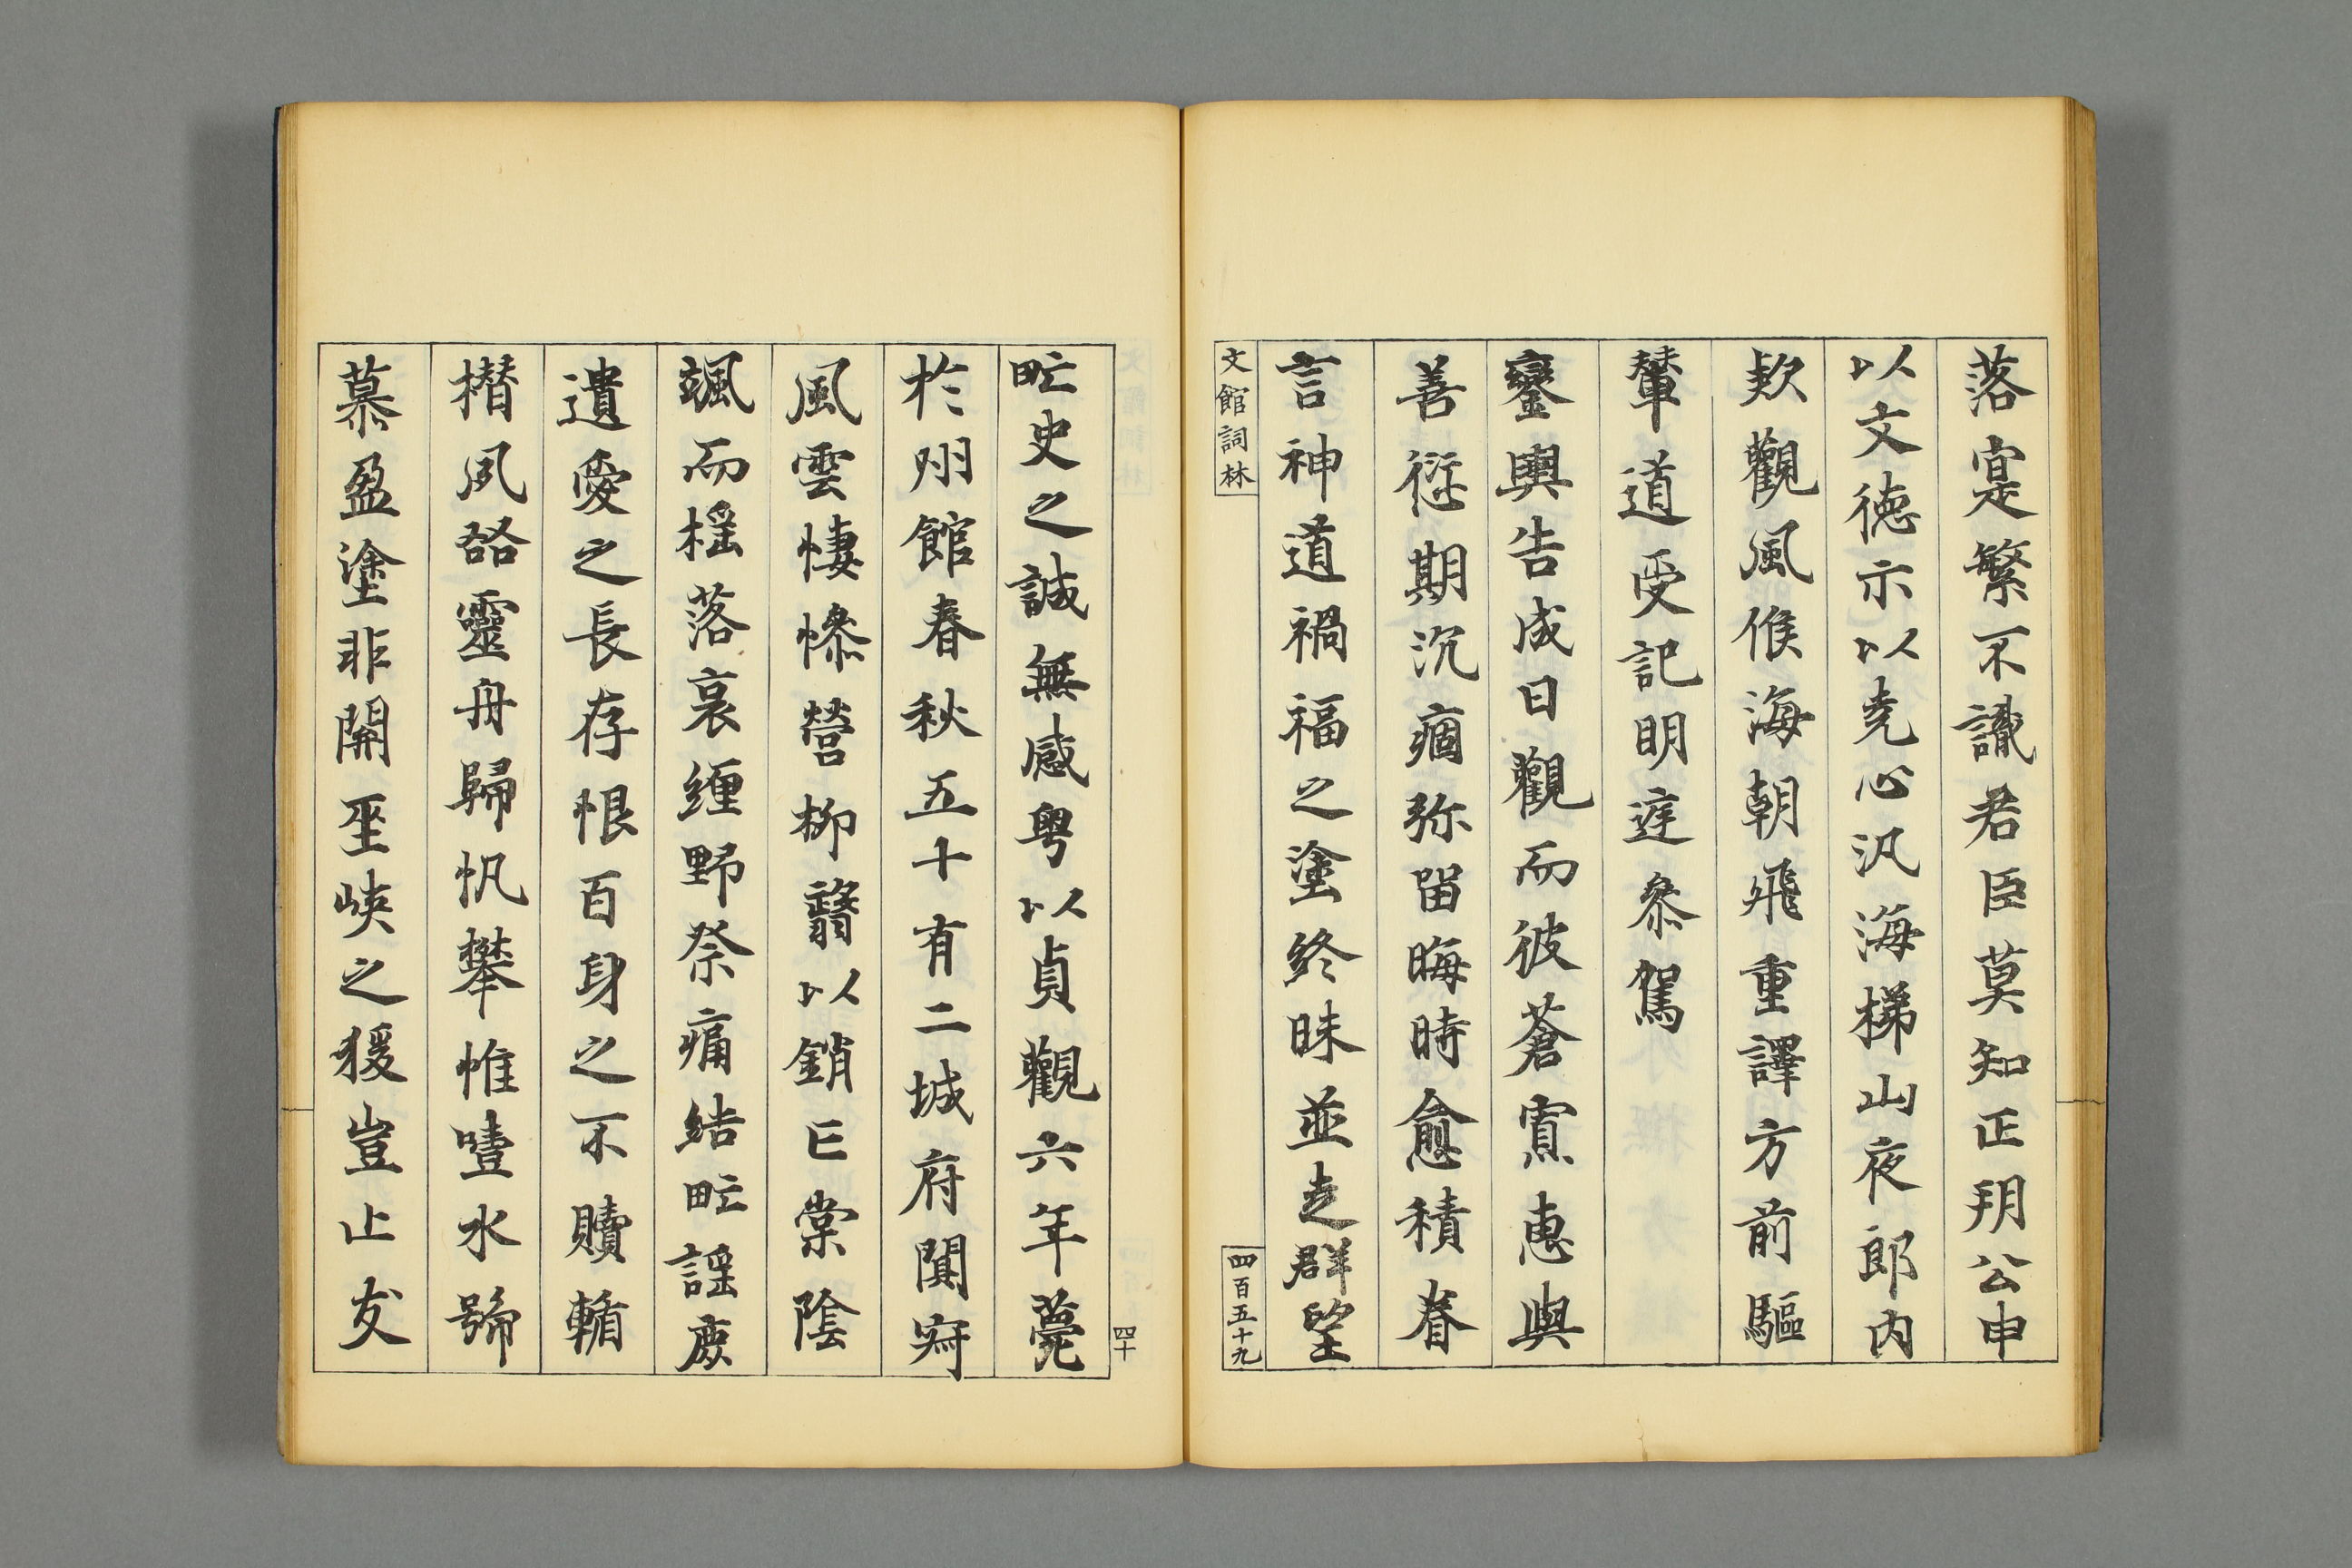 落寔繁不識君臣莫知正朔公申
以文徳示以尭心汎海梯山夜郎内
欵觀風候海朝飛重譯方前驅
輦道受記明庭叅駕
鑾輿告成日觀而彼蒼寘惠與
善愆期沉痼弥留晦時愈積眷
言神道禍福之塗終昧並走群望
文館詞林
四百五十九
四十
甿史之誠無感粤以貞觀六年薨
於州館春秋五十有二城府闃寂
風雲悽慘營柳翳以銷亡棠陰
颯而榣落哀纏野祭痛結甿謡庻
遺愛之長存恨百身之不贖輴
櫕夙啓靈舟歸帆攀帷噎水號
慕盈塗非開巫峽之猨豈止友